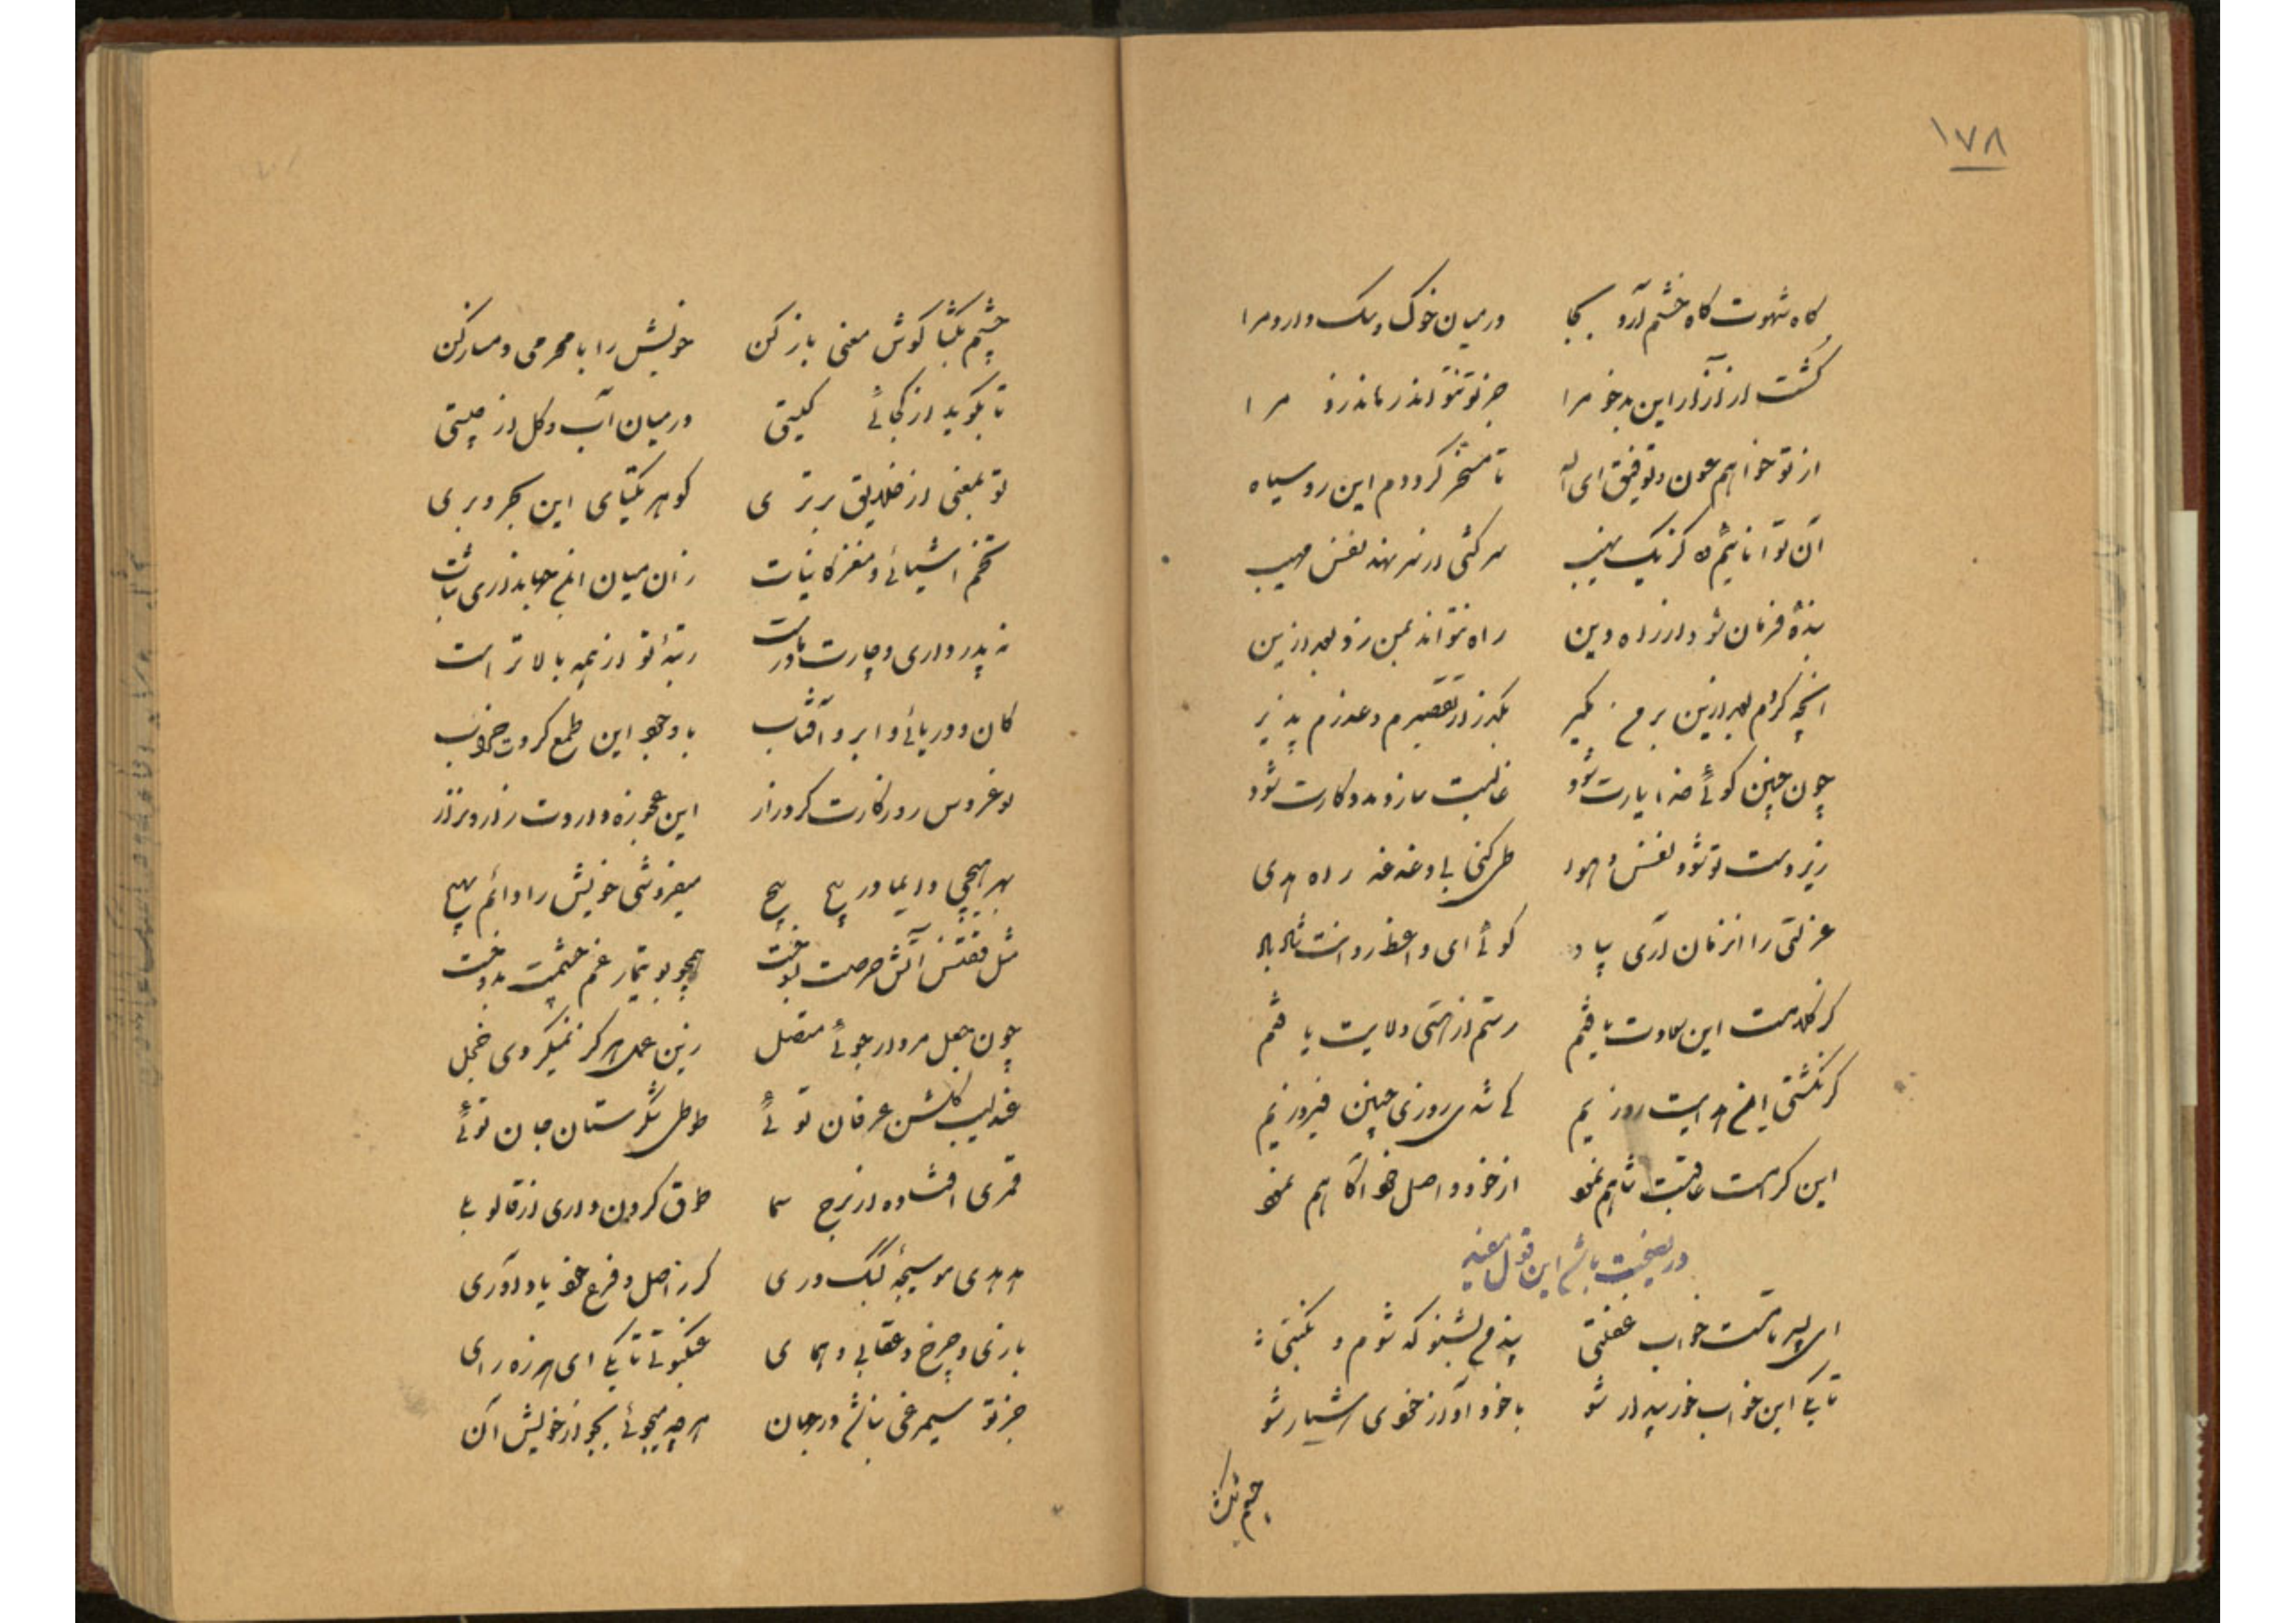 ۱۷۸
گاه شهوت گاه خشم آرد بجا در میان خوک و سگ دارد مرا
کشت از آزار این بدخو مرا جز تو نتواند رهاند زو مرا
از تو خواهم عون و توفیق ای اله تا مسخر گرددم این روسیاه
آن توانائیم ده کز یک نهیب سرکشی از سر نهد نفس مهیب
بندهٔ فرمان شود از راه دین راه نتواند بمن زد بعد ازین
آنچه کردم بعد ازین بر من مگیر بگذر از تقصیرم و عذرم پذیر
چون چنین گوئی خدا یارت شود غالبت سازد مددکارت شود
زیردست تو شود نفس و هوا طی کنی بی دغدغه راه هدی
عزلتی را آنزمان آری بیاد گوئی ای واعظ روانت شاد باد
کز کلامت این سعادت یافتم رستم از پستی ولایت یافتم
گر نگشتی این هدایت روزیم کی شدی روزی چنین فیروزیم
این کرامت عاقبت شاهم نمود از خود و اصل خود آگاهم نمود
در نصیحت باشد این قول مفید
ای پسر تا مست خواب غفلتی پند من بشنو که شوم و نکبتی
تا بکی این خواب خوش بیدار شو با خود آ و از خودی هشیار شو
چشم بگشا
چشم بگشا گوش معنی باز کن خویش را با محرمی دمساز کن
تا بگوید از کجائی کیستی در میان آب و گل از چیستی
تو بمعنی از خلایق برتری گوهر یکتای این بحر و بری
تخم اشیائی و مغز کاینات زان میان این جهانداری ثبات
نه پدر داری و چارت مادر است رتبهٔ تو از همه بالاتر است
کان و دریائی و ابر و آفتاب با وجود این طمع کردت خراب
نوعروس روزگارت کرد زار این عجوزه داردت زار و نزار
بهر هیچی دایما در پیچ پیچ میفروشی خویش را دائم بهیچ
مثل ققنس آتش حرصت بسوخت همچو بوتیمار غم چشمت بدوخت
چون جعل مردار جوئی متصل زین عمل هرگز نمیگردی خجل
عندلیب گلشن عرفان توئی طوطی شکرستان جان توئی
قمری افتاده از برج سما طوق گردن داری از قالو بلی
هدهدی موسیچهٔ کبک دری گر ز اصل و فرع خود یاد آوری
بازی و چرخ و عقابی و همای عنکبوتی تا بکی ای هرزه رای
جز تو سیمرغی نباشد در جهان هر چه میجوئی بجو از خویش آن